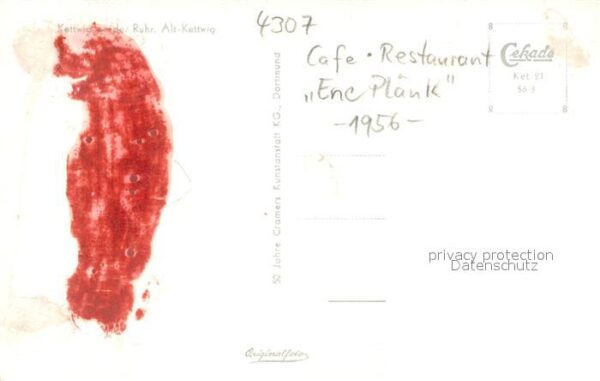 Kettwig an der Ruhr, Alt-Kettwig
4307
Cafe · Restaurant
„Enc Plänk"
-1956-
Cekade
Ket 21
56-3
50 Jahre Cramers Kunstanstalt KG., Dortmund
privacy protection
Datenschutz
Originalfoto